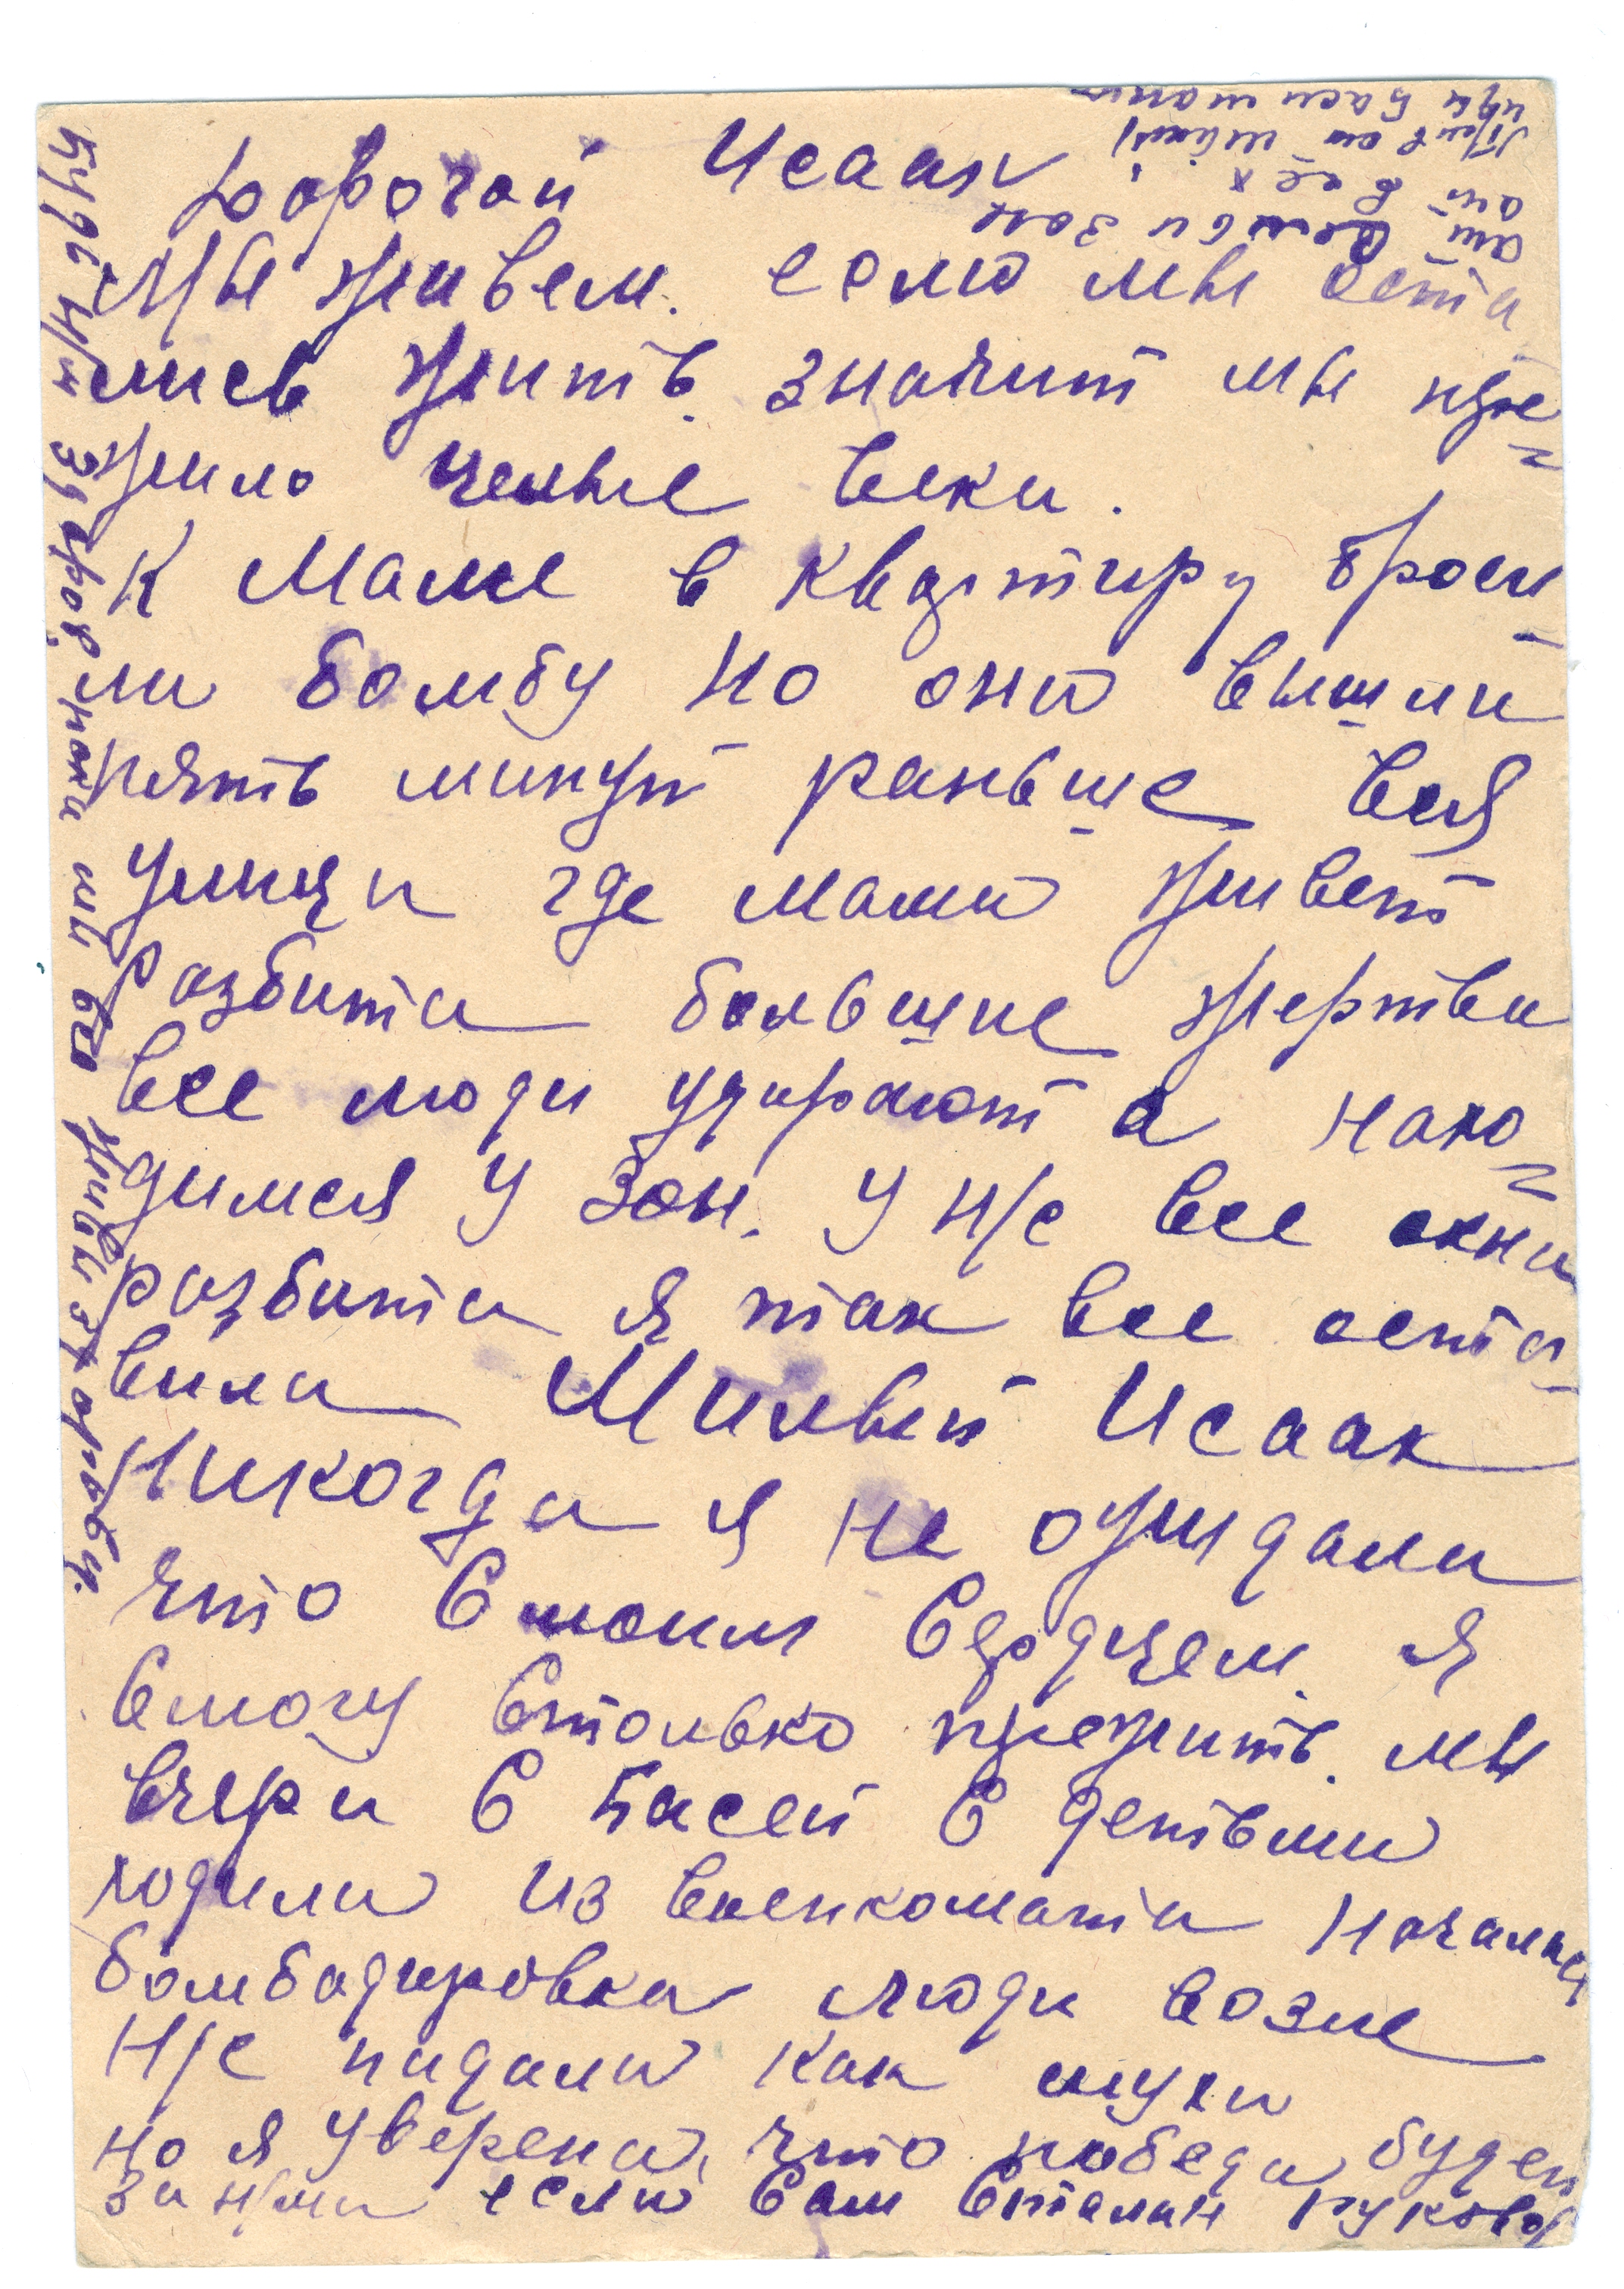 Дорогой Исаак
Мы живем. если мы оста
лись жить. значит мы пре=
жило целые веки.
К Маме в квартиру броси
ли бомбу но они вышли
пять минут раньше вся
улица где мама живет
разбита большие жертва
все люди удирают а нахо=
димся у Зон. У нас все окна
разбита я так все оста
вила Милый Исаак
Никогда я не ожидала
что с моим сердцем я
смогу столько прежить. мы
вчера с Басей с детьми
ходили из военкомата началась
бомбадировка люди возле
нас падали как мухи
но я уверена, что победа будет
за нами если сам Сталин руковод
Будь мн здоров, пока мы все живы здоровы.
Привет
от всех